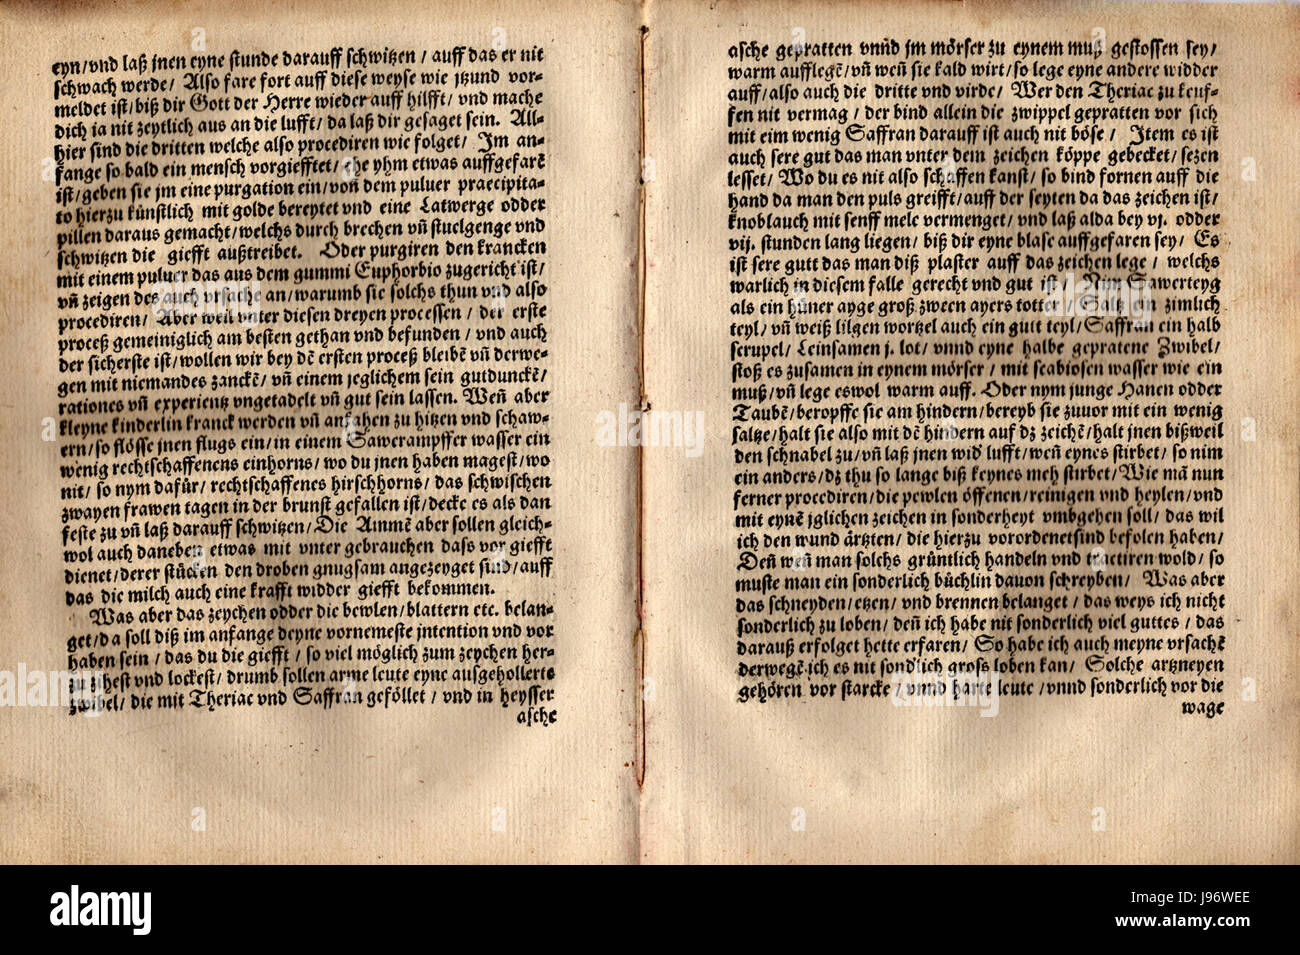 eyn/vnd laß jnen eyne stunde darauff schwitzen/ auff das er nit
schwach werde/ Also fare fort auff diese weyse wie jtzund vor-
meldet ist/biß dir Gott der Herre wieder auff hilfft/ vnd mache
dich ia nit zeytlich aus an die lufft/ da laß dir gesaget sein. All-
hier sind die dritten welche also procediren wie folget/ Im an-
fange so bald ein mensch vorgiefftet/ ehe yhm etwas auffgefarē
ist/geben sie jm eine purgation ein/ von dem puluer praecipita-
to hierzu künstlich mit golde bereytet vnd eine Latwerge odder
pillen daraus gemacht/welchs durch brechen vn̄ stuelgenge vnd
schwitzen die giefft außtreibet. Oder purgiren den krancken
mit einem puluer das aus dem gummi Euphorbio zugericht ist/
vn̄ zeigen des auch vrsache an/warumb sie solchs thun vnd also
procediren/ Aber weil vnter diesen dreyen processen/ der erste
proceß gemeiniglich am besten gethan vnd befunden/ vnd auch
der sicherste ist/wollen wir bey dē ersten proceß bleibē vn̄ derwe-
gen mit niemandes zanckē/ vn̄ einem jeglichem sein gutdunckē/
rationes vn̄ experientz vngetadelt vn̄ gut sein lassen. Wen̄ aber
kleyne kinderlin kranck werden vn̄ anfahen zu hitzen vnd schaw-
ern/ so flösse jnen flugs ein/ in einem Sawerampffer wasser ein
wenig rechtschaffenens einhorns/ wo du jnen haben magest/wo
nit/ so nym dafür/ rechtschaffenes hirschhorns/ das schwischen
zwayen frawen tagen in der brunst gefallen ist/decke es als dan
feste zu vn̄ laß darauff schwitzen/Die Ammē aber sollen gleich-
wol auch daneben etwas mit vnter gebrauchen dass vor giefft
dienet/derer stücken den droben gnugsam angezeyget sind/auff
das die milch auch eine krafft widder giefft bekommen.
Was aber das zeychen odder die bewlen/blattern etc. belan-
get/da soll diß im anfange deyne vornemeste jntention vnd vor
haben sein/ das du die giefft/ so viel möglich zum zeychen her-
zu zihest vnd lockest/ drumb sollen arme leute eyne ausgehollerte
zwibel/ die mit Theriac vnd Saffran geföllet/ vnd in heysser
asche
asche gepratten vnn̄d jm mörser zu eynem muß gestossen sey/
warm aufflegē/ vn̄ wen̄ sie kald wirt/so lege eyne andere widder
auff/also auch die dritte vnd virde/ Wer den Theriac zu keuf-
fen nit vermag/ der bind allein die zwippel gepratten vor sich
mit eim wenig Saffran darauff ist auch nit böse/ Item es ist
auch sere gut das man vnter dem zeichen köppe gebecket/ sezen
lesset/ Wo du es nit also schaffen kanst/ so bind fornen auff die
hand da man den puls greifft/auff der seyten da das zeichen ist/
knoblauch mit senff melc vermenget/ vnd laß alda bey vj. odder
vij. stunden lang liegen/ biß dir eyne blase auffgefaren sey/ Es
ist sere gutt das man diß plaster auff das zeichen lege/ welchs
warlich in diesem falle gerecht vnd gut ist/ Nim Sawerteyg
als ein hüner ayge groß zween ayers totter/ Saltz ein zimlich
teyl/ vn̄ weiß lilgen wortzel auch ein gutt teyl/Saffran ein halb
scrupel/ Leinsamen j. lot/ vnnd eyne halbe gepratene Zwibel/
stoß es zusamen in eynem mörser/ mit scabiosen wasser wie ein
muß/vn̄ lege eswol warm auff. Oder nym junge Hanen odder
Taubē/beropffe sie am hindern/bereyb sie zuuor mit ein wenig
saltze/halt sie also mit dē hindern auf dz zeichē/halt jnen bißweil
den schnabel zu/vn̄ laß jnen wid lufft/wen̄ eynes stirbet/ so nim
ein anders/dz thu so lange biß keynes meh stirbet/Wie mā nun
ferner procediren/die pewlen öffenen/reinigen vnd heylen/vnd
mit eynē jglichen zeichen in sonderheyt vmbgehen soll/ das wil
ich den wund ärtzten/ die hierzu vorordenetsind befolen haben/
Den̄ wen̄ man solchs grüntlich handeln vnd tractiren wold/ so
muste man ein sonderlich büchlin dauon schreyben/ Was aber
das schneyden/etzen/ vnd brennen belanget/ das weys ich nicht
sonderlich zu loben/ den̄ ich habe nit sonderlich viel guttes/ das
darauß erfolget hette erfaren/ So habe ich auch meyne vrsachē
derwegē ich es nit sondlich gross loben kan/ Solche artzneyen
gehören vor starcke/ vnnd harte leute/vnnd sonderlich vor die
wage
alamy
Image ID: J96WEE
www.alamy.com